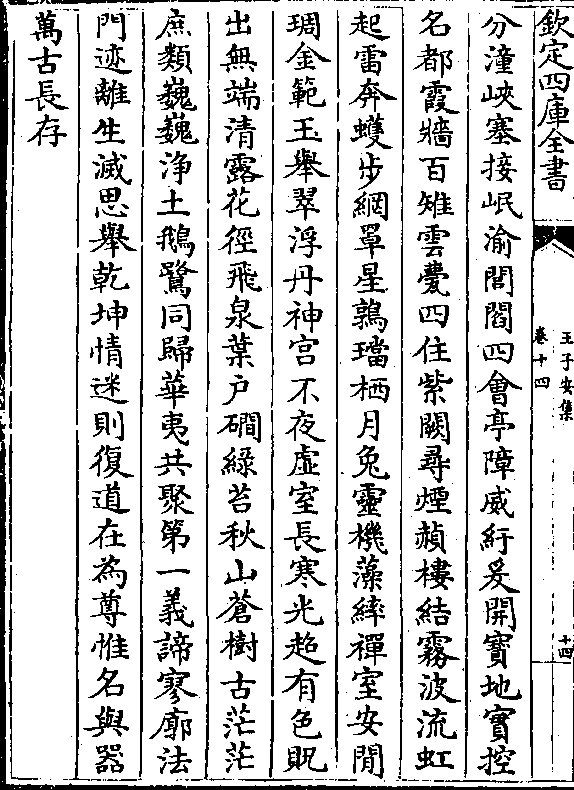 欽定四庫全書
王子安集
卷十四
十四
分潼峽塞接岷渝閭閻四會亭障威紆爰開寶地實控
名都霞牆百雉雲甍四住紫闕尋煙赬樓結霧波流虹
起雷奔蠖步網罩星鶉璫栖月兔靈機藻繂禪室安閒
琱金範玉舉翠浮丹神宮不夜虛室長寒光超有色貺
出無端清露花徑飛泉葉户磵綠苔秋山蒼樹古茫茫
庶類巍巍浄土鵝鷺同歸華夷共聚第一義諦寥廓法
門迹離生滅思舉乾坤情迷則復道在為尊惟名與器
萬古長存